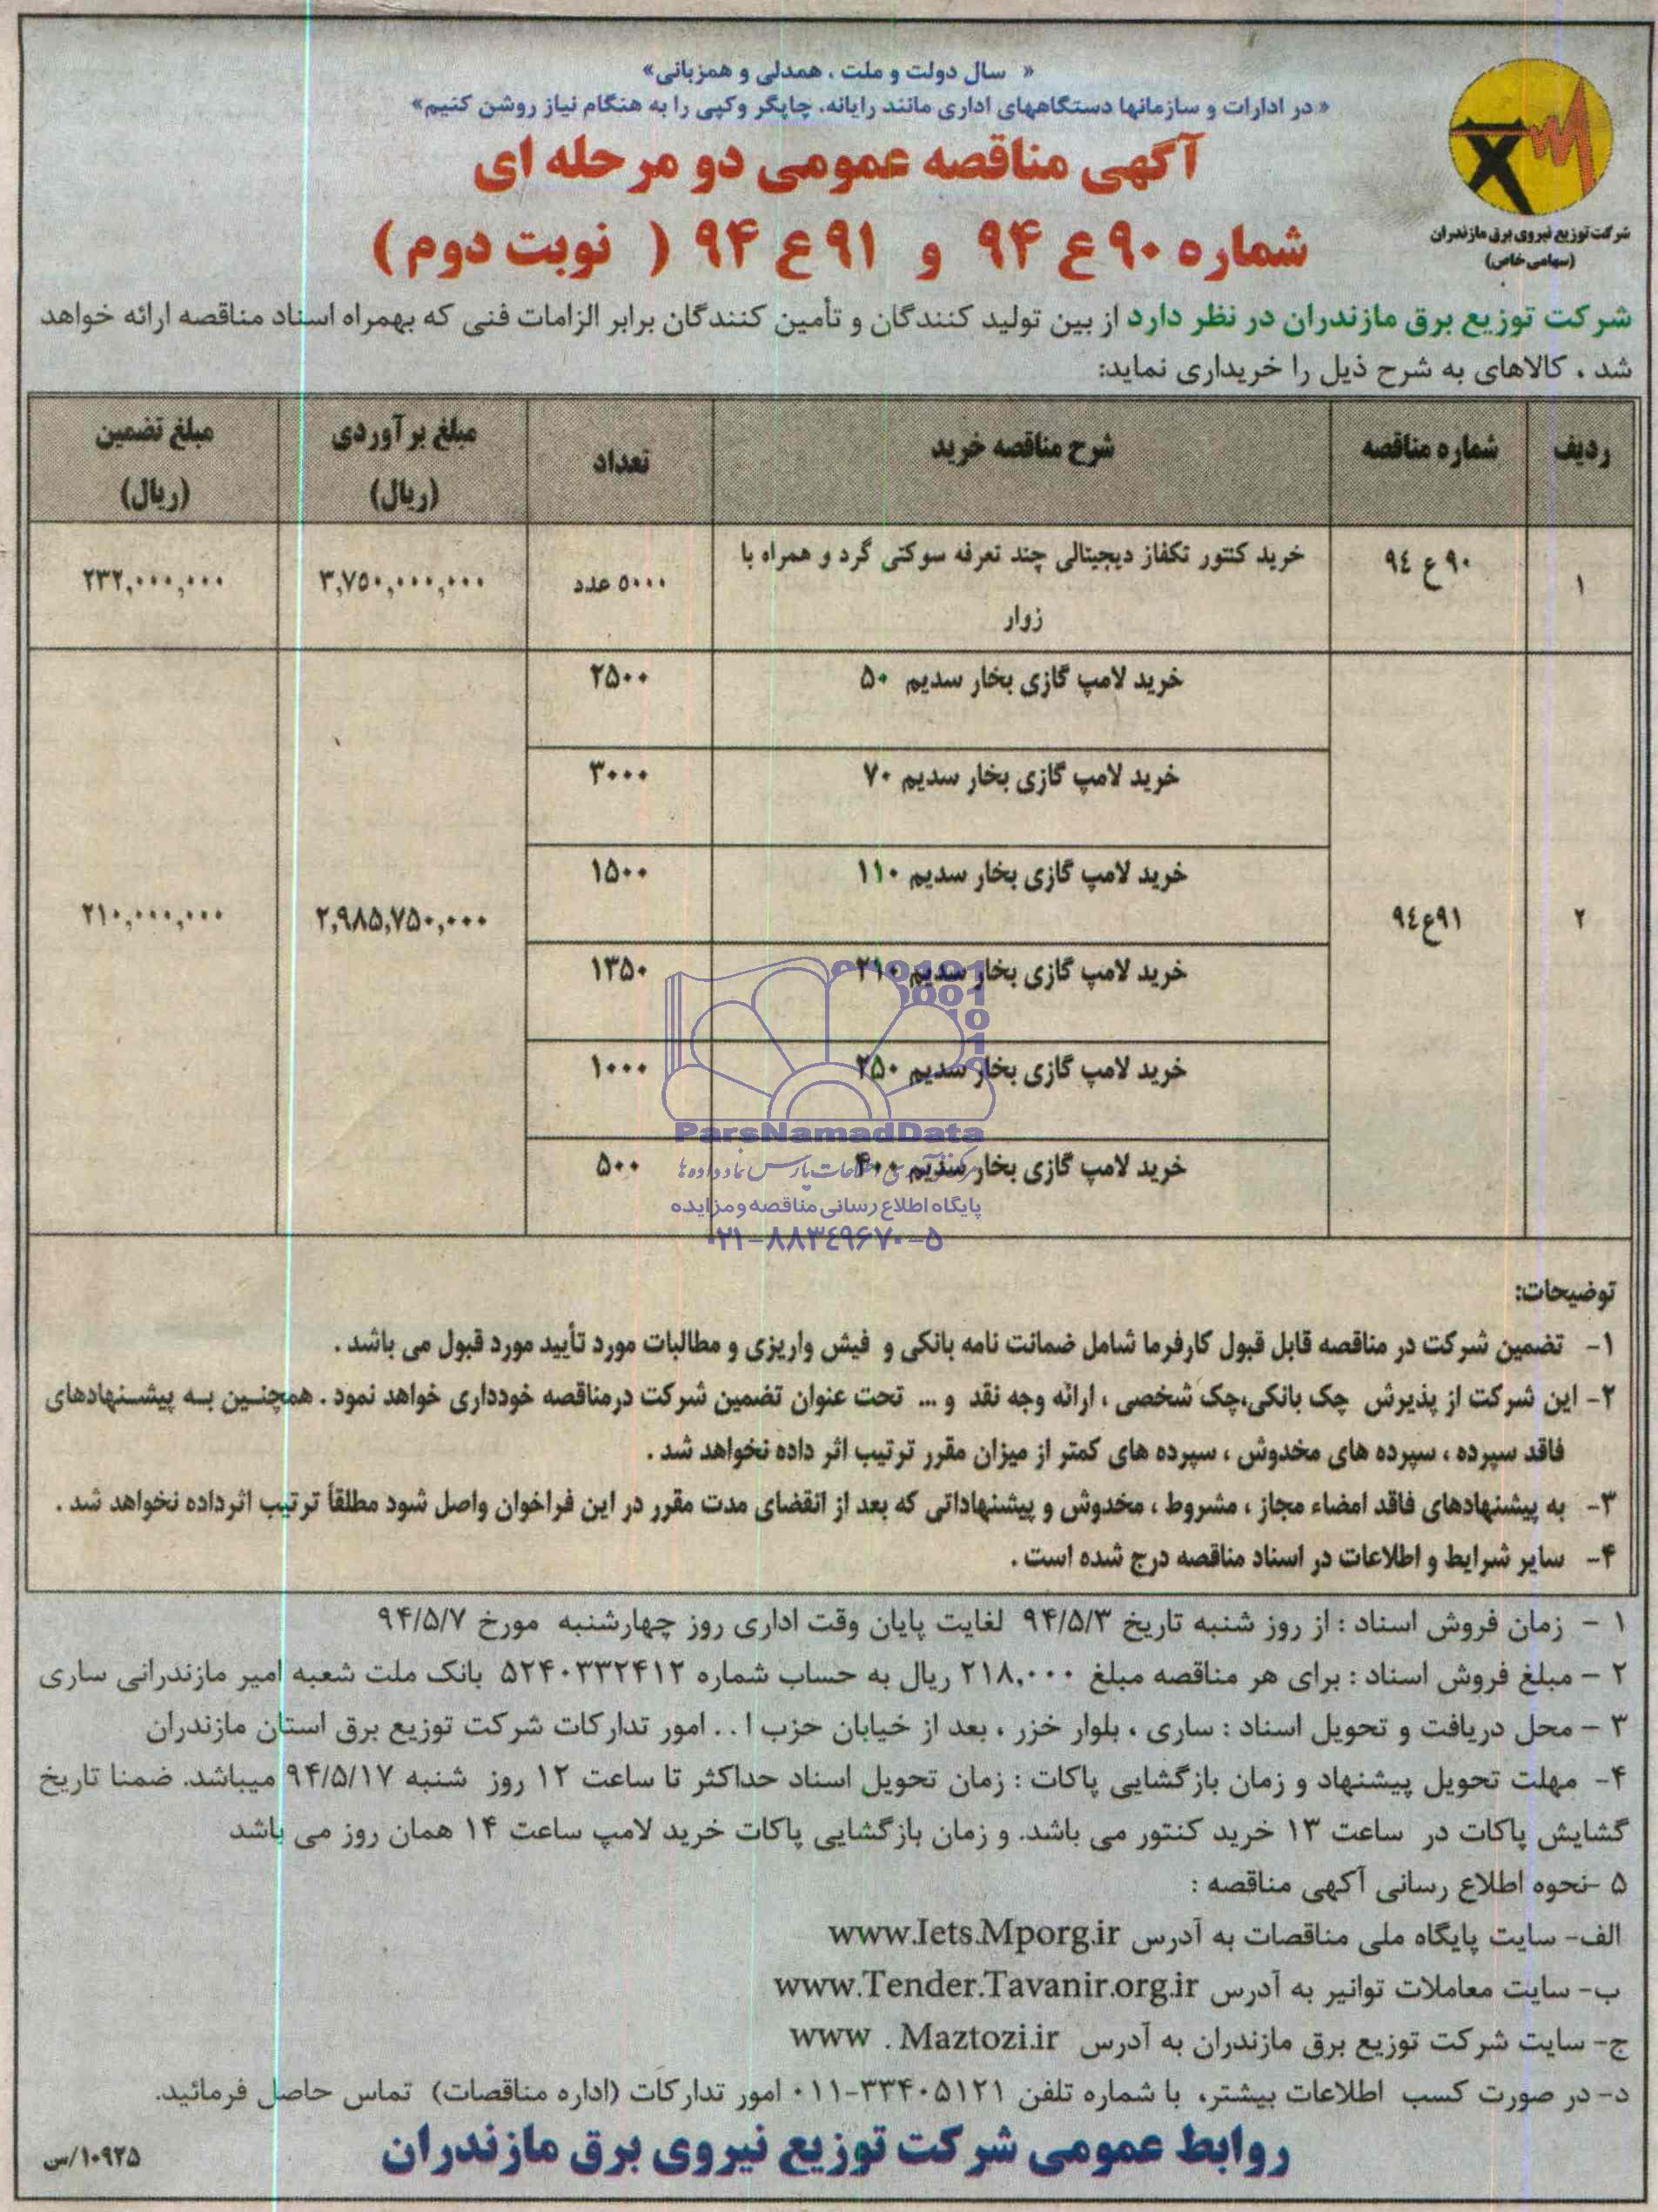 « سال دولت و ملت ، همدلی و همزبانی»
« در ادارات و سازمانها دستگاههای اداری مانند رایانه، چاپگر وکپی را به هنگام نیاز روشن کنیم»
آگهی مناقصه عمومی دو مرحله ای
شماره ۹۰ع ۹۴ و ۹۱ع ۹۴ ( نوبت دوم )
شرکت توزیع نیروی برق مازندران
(سهامی خاص)
شرکت توزیع برق مازندران در نظر دارد از بین تولید کنندگان و تأمین کنندگان برابر الزامات فنی که بهمراه اسناد مناقصه ارائه خواهد
شد ، کالاهای به شرح ذیل را خریداری نماید:
ردیف شماره مناقصه شرح مناقصه خرید تعداد مبلغ برآوردی (ریال) مبلغ تضمین (ریال)
۱ ۹۰ع ۹٤ خرید کنتور تکفاز دیجیتالی چند تعرفه سوکتی گرد و همراه با ۵۰۰۰ عدد ۳,۷۵۰,۰۰۰,۰۰۰ ۲۳۲,۰۰۰,۰۰۰
زوار
خرید لامپ گازی بخار سدیم ۵۰ ۲۵۰۰
خرید لامپ گازی بخار سدیم ۷۰ ۳۰۰۰
خرید لامپ گازی بخار سدیم ۱۱۰ ۱۵۰۰
۲ ۹۱ع۹٤ ۲,۹۸۵,۷۵۰,۰۰۰ ۲۱۰,۰۰۰,۰۰۰
خرید لامپ گازی بخار سدیم ۲۱۰ ۱۳۵۰
خرید لامپ گازی بخار سدیم ۲۵۰ ۱۰۰۰
خرید لامپ گازی بخار سدیم ۴۰۰ ۵۰۰
ParsNamadData
پایگاه اطلاع رسانی مناقصه و مزایده
۰۲۱-۸۸۳٤۹۶۷۰-۵
توضیحات:
۱- تضمین شرکت در مناقصه قابل قبول کارفرما شامل ضمانت نامه بانکی و فیش واریزی و مطالبات مورد تأیید مورد قبول می باشد .
۲- این شرکت از پذیرش چک بانکی،چک شخصی ، ارائه وجه نقد و ... تحت عنوان تضمین شرکت درمناقصه خودداری خواهد نمود . همچنین به پیشنهادهای
فاقد سپرده ، سپرده های مخدوش ، سپرده های کمتر از میزان مقرر ترتیب اثر داده نخواهد شد .
۳- به پیشنهادهای فاقد امضاء مجاز ، مشروط ، مخدوش و پیشنهاداتی که بعد از انقضای مدت مقرر در این فراخوان واصل شود مطلقاً ترتیب اثرداده نخواهد شد .
۴- سایر شرایط و اطلاعات در اسناد مناقصه درج شده است .
۱ - زمان فروش اسناد : از روز شنبه تاریخ ۹۴/۵/۳ لغایت پایان وقت اداری روز چهارشنبه مورخ ۹۴/۵/۷
۲ - مبلغ فروش اسناد : برای هر مناقصه مبلغ ۲۱۸,۰۰۰ ریال به حساب شماره ۵۲۴۰۳۳۲۴۱۲ بانک ملت شعبه امیر مازندرانی ساری
۳ - محل دریافت و تحویل اسناد : ساری ، بلوار خزر ، بعد از خیابان حزب ا . . امور تدارکات شرکت توزیع برق استان مازندران
۴- مهلت تحویل پیشنهاد و زمان بازگشایی پاکات : زمان تحویل اسناد حداکثر تا ساعت ۱۲ روز شنبه ۹۴/۵/۱۷ میباشد. ضمنا تاریخ
گشایش پاکات در ساعت ۱۳ خرید کنتور می باشد. و زمان بازگشایی پاکات خرید لامپ ساعت ۱۴ همان روز می باشد
۵ -نحوه اطلاع رسانی آگهی مناقصه :
الف- سایت پایگاه ملی مناقصات به آدرس www.Iets.Mporg.ir
ب- سایت معاملات توانیر به آدرس www.Tender.Tavanir.org.ir
ج- سایت شرکت توزیع برق مازندران به آدرس www . Maztozi.ir
د- در صورت کسب اطلاعات بیشتر، با شماره تلفن ۳۳۴۰۵۱۲۱-۰۱۱ امور تدارکات (اداره مناقصات) تماس حاصل فرمائید.
روابط عمومی شرکت توزیع نیروی برق مازندران
۱۰۹۲۵/س